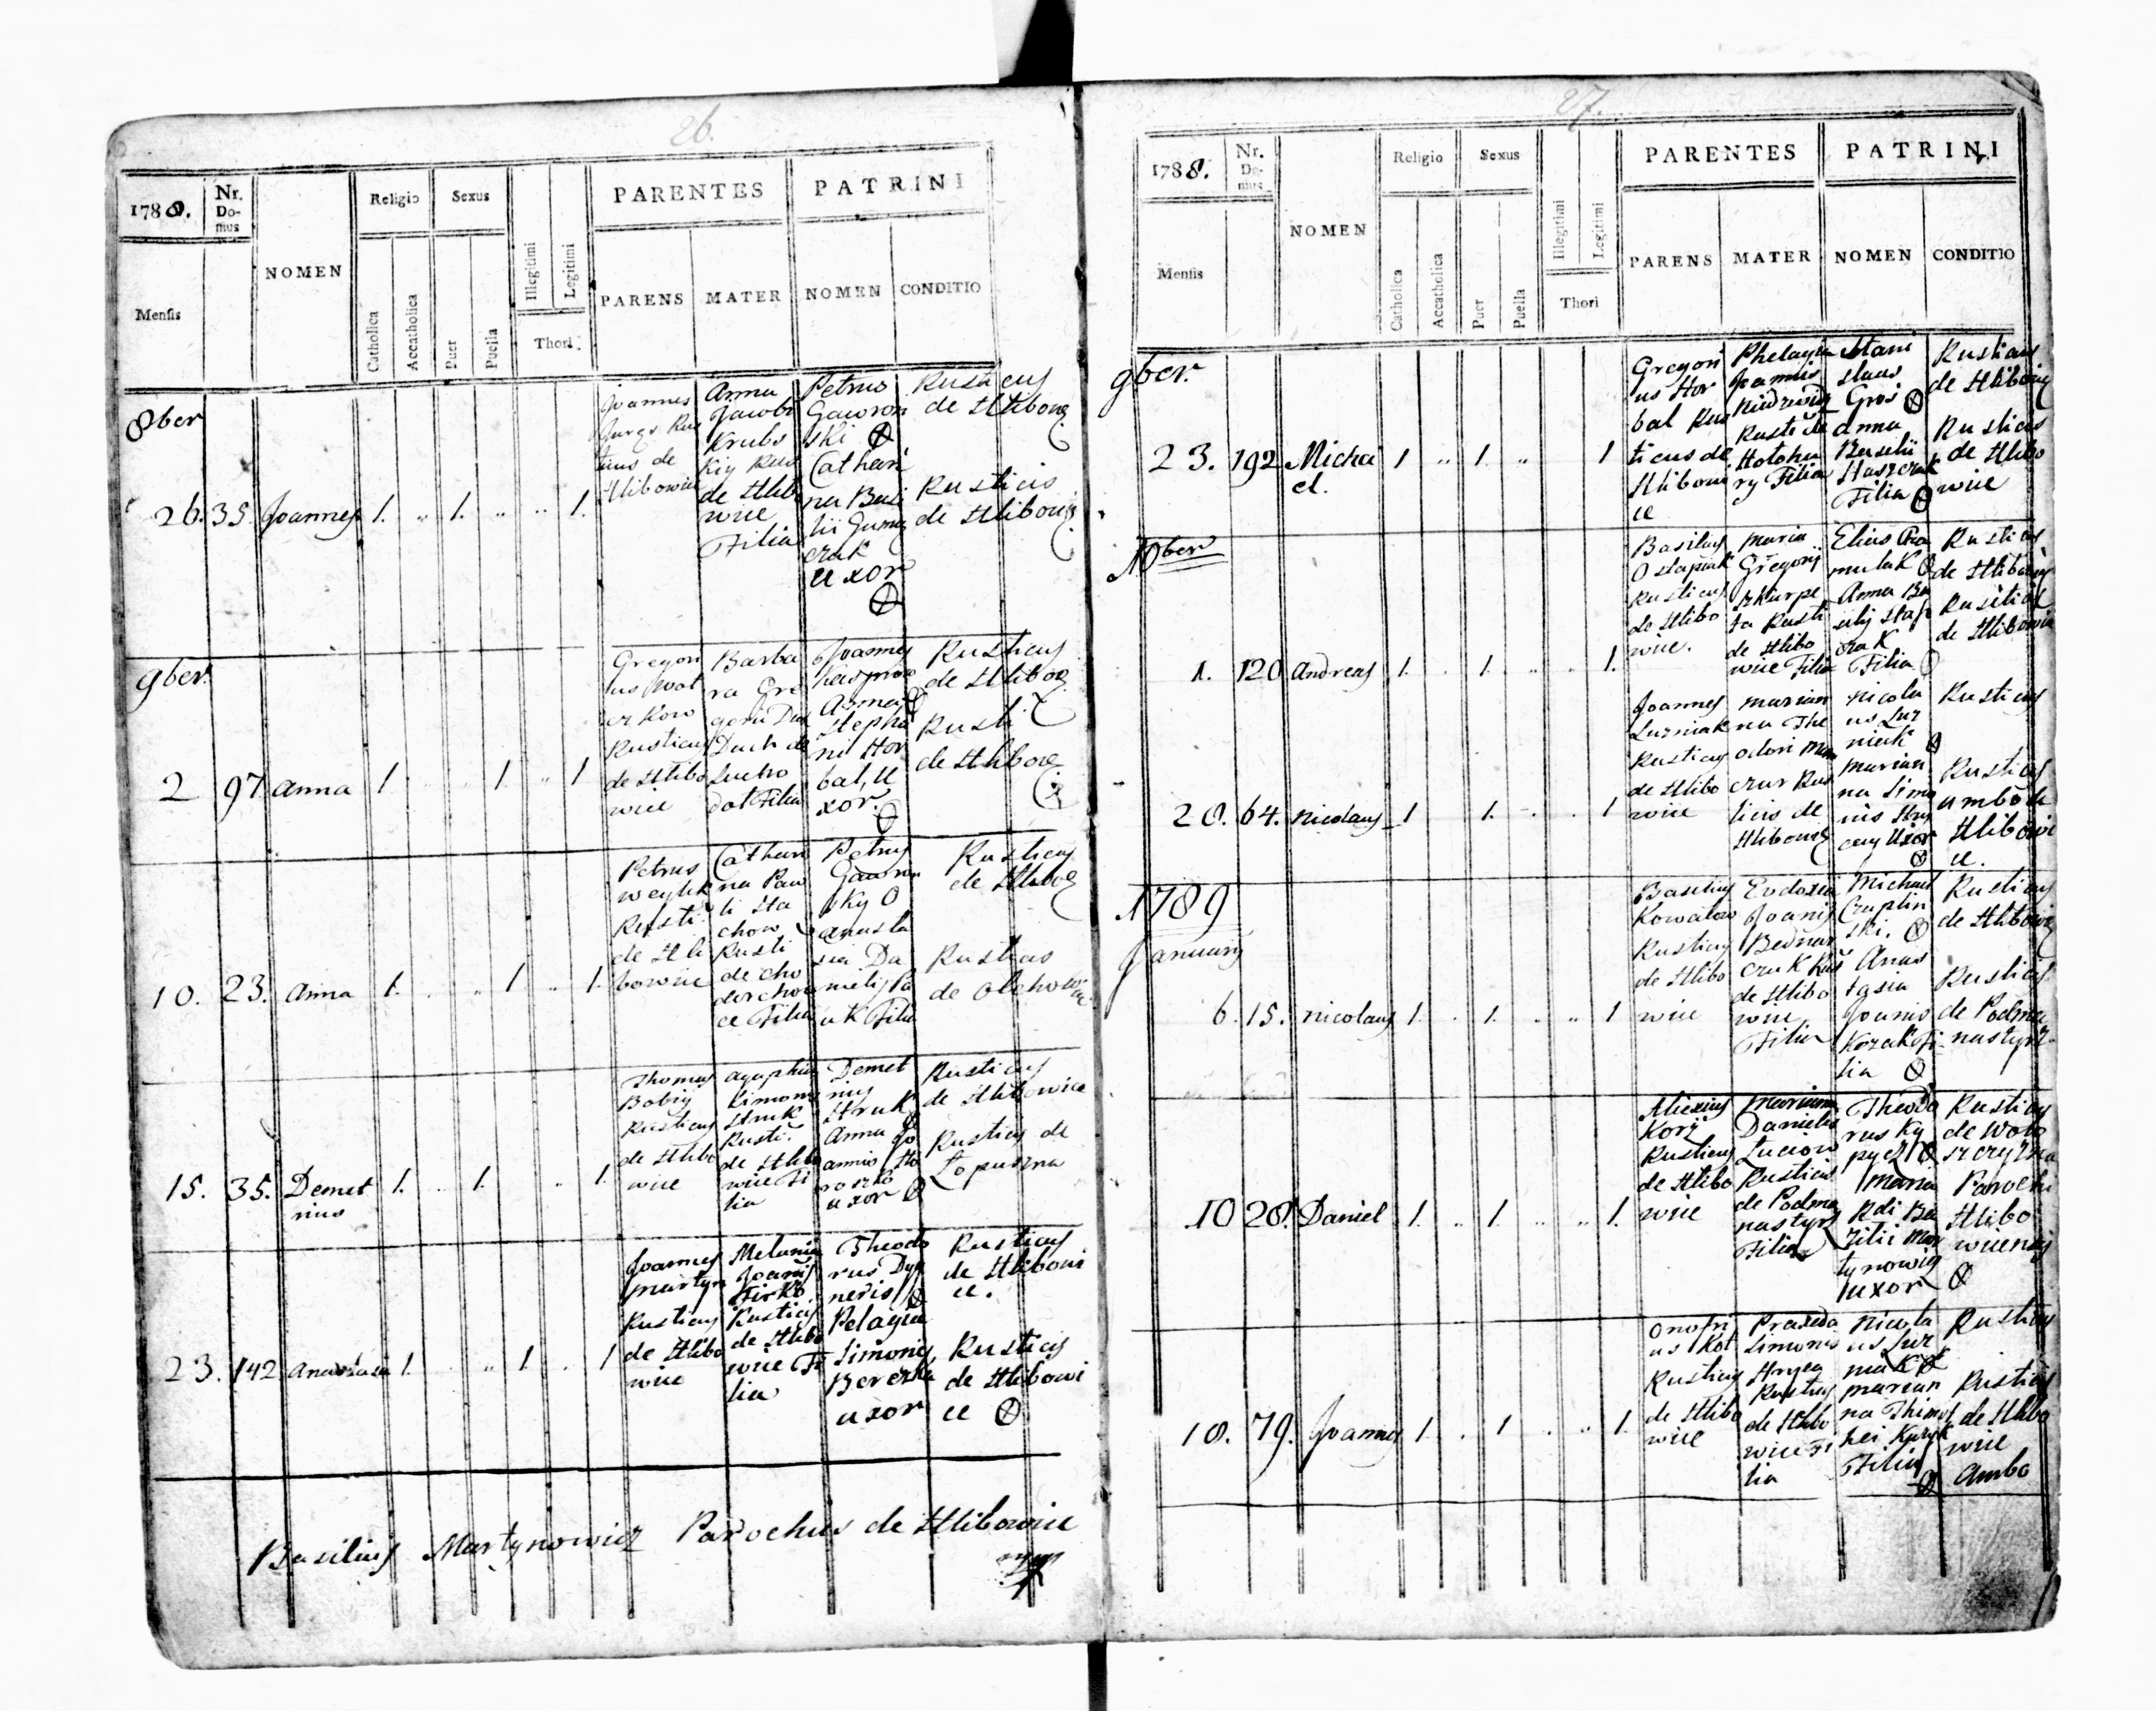 26.
1788.
Nr.
Do-
mus
NOMEN
Religio
Sexus
Illegitimi
Legitimi
PARENTES
PATRINI
Mensis
Catholica
Accatholica
Puer
Puella
Thori
PARENS
MATER
NOMEN
CONDITIO
8ber
26. 35. Joannes 1. 1. 1.
Joannes
Rus
ticus de
Hlibowice
Anna
Jacobi
Krubs
kiy Rus
de Hlibo
wice
Filia
Petrus
Gawron
ski
Cathari
na Basi
lii
czuk
uxor
Rusticus
de Hlibowic
Rusticus
de Hlibowic
9ber.
2 97 Anna 1 1 1
Gregori
us Wat
Rusticus
de Hlibo
wice
Barba
ra Gre
gorii
Filia
Joannes
Stepha
ni Hor
bal, U
xor.
Rusticus
de Hliboc
Rusti
de Hliboc
10. 23. Anna 1. 1 1.
Petrus
Weytik
Rusti
de Hli
bowice
Cathari
na Paw
li Sta
chow
Rusti
de Cho
derchow
ce Filia
Petrus
Gawron
sky
Anasta
sia Da
uk Filia
Rusticus
de Hliboc
Rusticus
de Olchow
15. 35. Demet
rius 1. 1. 1.
Thomas
Bobiy
Rusticus
de Hlibo
wice
Agaphia
Simonis
Struk
Rusti.
de Hlibo
wice Fi
lia
Demet
rius
Struk
Anna Jo
annis
uxor
Rusticus
de Hlibowice
Rusticus de
Lopuszna
23. 142 Anastasia 1. 1 1
Joannes
Martyn
Rusticus
de Hlibo
wice
Melania
Joanis
Firko
Rusticus
de Hlibo
wice Fi
lia
Theodo
rus
Pelagia
Simonis
Berezka
uxor
Rusticus
de Hlibowi
ce.
Rusticus
de Hlibowi
ce
Basilius Martynowicz Parochus de Hlibowice
27.
1788.
Nr.
Do-
mus
NOMEN
Religio
Sexus
Illegitimi
Legitimi
PARENTES
PATRINI
Mensis
Catholica
Accatholica
Puer
Puella
Thori
PARENS
MATER
NOMEN
CONDITIO
9ber.
23. 192 Micha
el. 1 1. 1
Gregori
us Hor
bal Rus
ticus de
Hlibowi
ce
Phelagia
Joannis
Rusti de
Hotohu
ry Filia
Stani
slaus
Gros
Anna
Basilii
Filia
Rusticus
de Hlibowic
Rusticus
de Hlibo
wice
10ber
1. 120 Andreas 1. 1. 1.
Basilius
Ostapiuk
Rusticus
de Hlibo
wice.
Maria
Gregorij
Rusti
de Hlibo
wice Filia
Elias
Anna Ba
silij
czuk
Filia
Rusticus
de Hlibowic
Rusticus
de Hlibowic
20. 64. Nicolaus 1 1. 1
Joannes
Luzniak
Rusticus
de Hlibo
wice
Marian
na The
odori
Rus
ticus de
Hlibowic
Nicola
us Luz
niak
Marian
na Simo
nis
uxor
Rusticus
Rusticus
ambo de
Hlibowi
ce.
1789
Januarij
6. 15. Nicolaus 1. 1. 1
Basilius
Kowalow
Rusticus
de Hlibo
wice
Eudoxia
Joanis
Bednar
czuk Rus
de Hlibo
wice
Filia
Michael
Czaplin
ski.
Anas
tasia
Joanis
Kozak Fi
lia
Rusticus
de Hlibowic
Rusticus
de Podma
nastyrz
10 28. Daniel 1. 1. 1.
Alexius
Korij
Rusticus
de Hlibo
wice
Marianna
Danielis
Luciow
Rusticus
de Podma
nastyrz
Filia
Theodo
rus Ky
pycz
Maria
Rdi Ba
zilii Mar
tynowicz
uxor
Rusticus
de Wolo
szczyzna
Parochi
Hlibo
wicensis
18. 79. Joannes 1. 1 1.
Onofri
us Kot
Rusticus
de Hlibo
wice
Praxeda
Simonis
Rusticus
de Hlibo
wice Fi
lia
Nicola
us Luz
niak
Marian
na Thimot
hei
Filia
Rusticus
Rusticus
de Hlibo
wice
Ambo